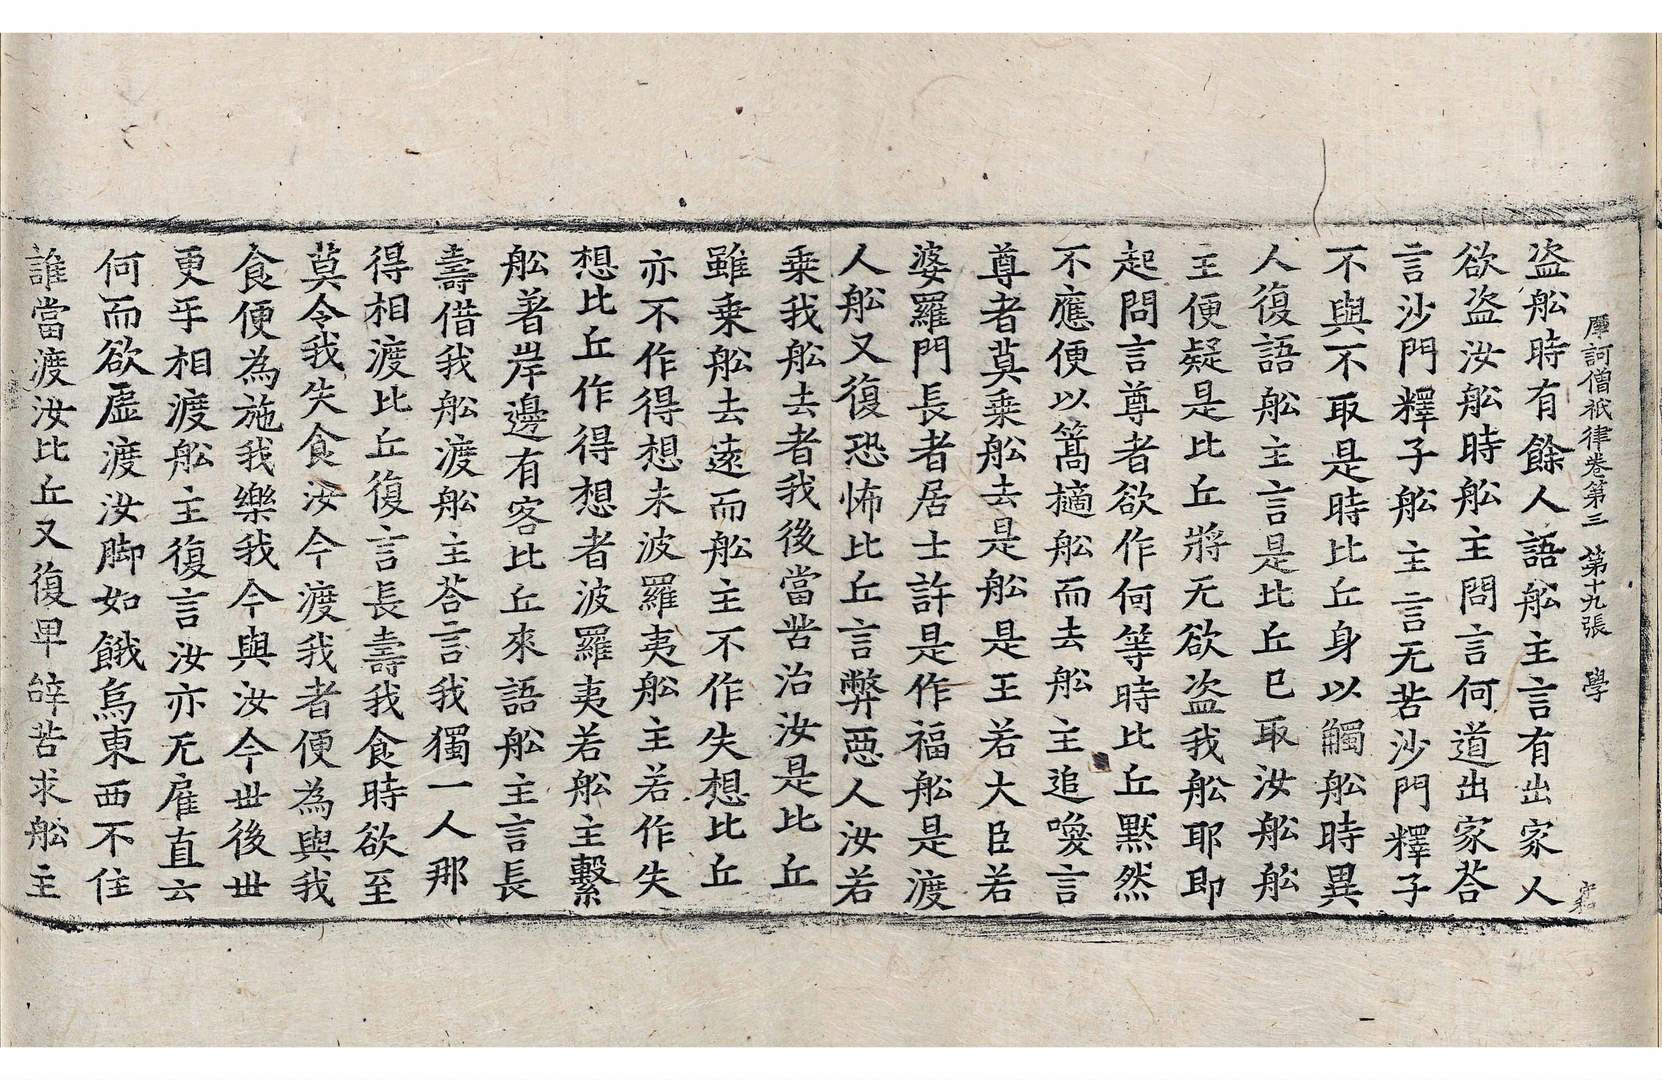 摩訶僧祇律卷第三 第十九張 學
盗舩時有餘人語舩主言有出家人
欲盗汝舩時舩主問言何道出家荅
言沙門釋子舩主言无苦沙門釋子
不與不取是時比丘身以觸舩時異
人復語舩主言是比丘已取汝舩舩
主便疑是比丘將无欲盗我舩耶即
起問言尊者欲作何等時比丘黙然
不應便以篙擿舩而去舩主追喚言
尊者莫乗舩去是舩是王若大臣若
婆羅門長者居士許是作福舩是渡
人舩又復恐怖比丘言弊惡人汝若
乗我舩去者我後當苦治汝是比丘
雖乗舩去遠而舩主不作失想比丘
亦不作得想未波羅夷舩主若作失
想比丘作得想者波羅夷若舩主繫
舩著岸邊有客比丘來語舩主言長
壽借我舩渡舩主荅言我獨一人那
得相渡比丘復言長壽我食時欲至
莫令我失食汝今渡我者便為與我
食便為施我樂我今與汝今世後世
更乎相渡舩主復言汝亦无雇直云
何而欲虛渡汝脚如餓烏東西不住
誰當渡汝比丘又復卑辝苦求舩主